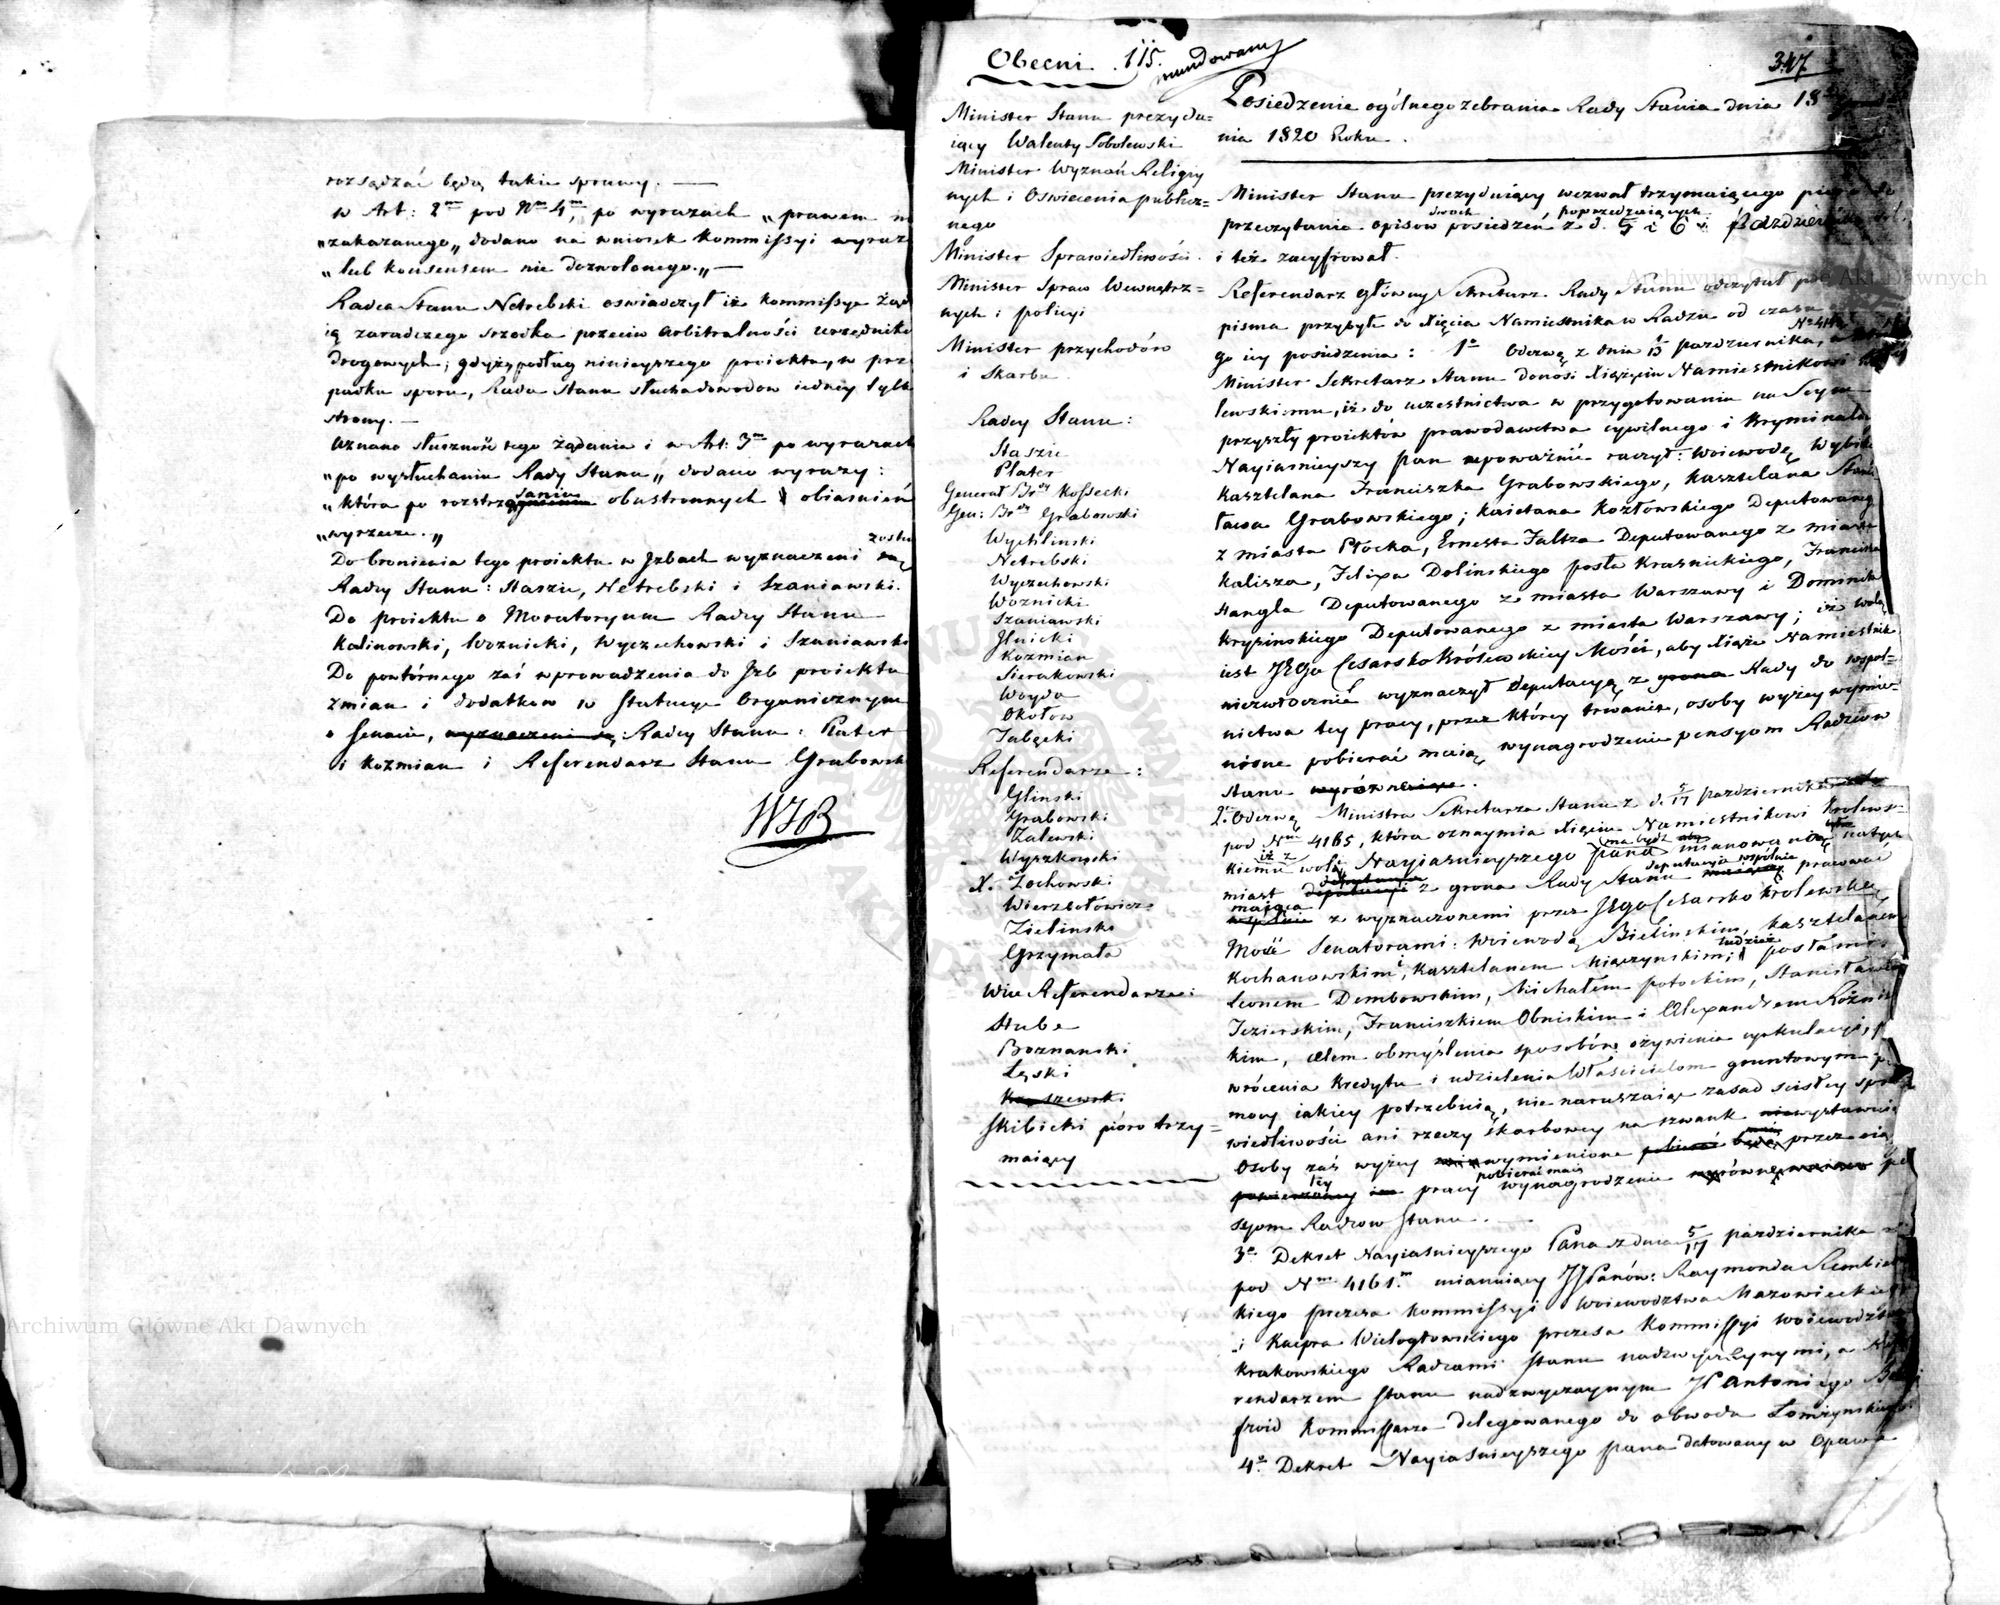 rozsądzać będą takie sprawy. —
w Art: 2m pod Nm 4m, po wyrazach „prawem
„zakazanego„ dodano na wniosek Kommissyi wyrazy
„lub konsensem nie dozwolonego.„ —
Radca Stanu Netrebski oswiadczył iż Kommissya
zaradczego srzodka przeciw arbitralności urzędników
drogowych; gdyż podług ninieyszego proiektu, w przy
padku sporu, Rada Stanu słucha dowodow iedney tylko
strony. —
Uznano słuszność tego żądania i w Art: 3m po wyrazach
„po wysłuchaniu Rady Stanu„ dodano wyrazy:
„która po roztrząsaniu obustronnych obiasnień
„wyrzecze.„
Do bronienia tego proiektu w Jzbach wyznaczeni
Radcy Stanu: Staszic, Netrebski i Szaniawski.
Do proiektu o Moratoryum Radcy Stanu
Kalinowski, Woznicki, Wyczechowski i Szaniawski
Do powtórnego zaś wprowadzenia do Jzb proiektu
zmian i dodatkow w Statucie Organicznym
o Senacie, wyznaczeni są Radcy Stanu: Plater
i Kozmian i Referendarz Stanu Grabowski
Obecni. 115. mundowany
Minister Stanu prezydu=
iący Walenty Sobolewski
Minister Wyznań Religiy
nych i Oswiecenia publicz=
nego
Minister Sprawiedliwości.
Minister Spraw Wewnętrz=
nych i policyi
Minister przychodów
i Skarbu.
Radcy Stanu:
Staszic
Plater
Generał Bry Kossecki
Gen: Bry Grabowski
Wychlinski
Netrebski
Wyczechowski
Woznicki
Szaniawski
Jlnicki
Kozmian
Sierakowski
Woyda
Okołow
Jabłęcki
Referendarze:
Glinski
Grabowski
Zalewski
Wyszkowski
X. Zochowski
Wierzbołowicz
Zielinski
Grzymała
Wice Referendarze:
Stube
Boznanski
Łęski
Kraszewski
Skibicki pióro trzy=
maiący
347
Posiedzenie ogólnego zebrania Rady Stanu dnia 18
nia 1820 Roku.
Minister Stanu prezyduiący wezwał trzymaiącego pióro do
przeczytania opisów dwoch posiedzeń poprzedzaiących z d. 5 i 6 Pazdziernika
i też zacyfrował.
Referendarz główny Sekretarz Rady Stanu odczytał
pisma przybyłe do Xięcia Namiestnika w Radzie od czasu
go iey posiedzenia: 1o Odezwę z dnia 1/13 pazdziernika,
Minister Sekretarz Stanu donosi Xiążęciu Namiestnikowi
lewskiemu, iż do uczestnictwa w przygotowaniu na Seym
przyszły proiektów prawodawstwa cywilnego i Kryminalnego
Nayiasnieyszy Pan upoważnić raczył: Woiewodę Wybickiego
Kasztelana Franciszka Grabowskiego, Kasztelana Stanis
ława Grabowskiego; Kaietana Kozłowskiego Deputowanego
z miasta Płocka, Ernesta Faltza Deputowanego z miasta
Kalisza, Felixa Dolinskiego posła Krasnickiego, Franciszka
Stangla Deputowanego z miasta Warszawy i Dominika
Krysinskiego Deputowanego z miasta Warszawy; iż wolą
iest JEgo Cesarsko Królewskiey Mości, aby Xiąże Namiestnik
niezwłocznie wyznaczył Deputacyą z grona Rady do współ=
nictwa tey pracy, przez którey trwanie, osoby wyżey wymie=
nione pobierać maią wynagrodzenie pensyom Radców
Stanu wyrównywaiące.
2o Odezwę Ministra Sekretarza Stanu z d. 5/17 pazdziernika
pod Nm 4165, która oznaymia Xięciu Namiestnikowi Królews=
kiemu iż z wolą Nayiasnieyszego Pana ma bydź mianowaną natych
miast deputacya z grona Rady Stanu deputacya wspólnie pracować
maiąca z wyznaczonemi przez JEgo Cesarsko Królewską
Mość Senatorami: Woiewodą Bielinskim, Kasztelanem
Kochanowskim, Kasztelanem Miączynskim; tudzież posłami
Leonem Dembowskim, Michałem potockim, Stanisławem
Jezierskim, Franciszkiem Obniskim i Alexandrem Rożnic
kim, celem obmyślenia sposobów ożywienia cyrkulacyi,
wrócenia Kredytu i udzielenia Właścicielom gruntowym po
mocy iakiey potrzebuią, nie naruszaiąc zasad scisłey spra
wiedliwości ani rzeczy skarbowey na szwank nie wystawuiąc
Osoby zaś wyżey wymienione pobierać będą przez ciąg
tey pracy pobierać maią wynagrodzenie wyrównywaiące pen
syom Radzcow Stanu.
3o Dekret Nayiasnieyszego Pana z dnia 5/17 pazdziernika
pod Nm 4161.m mianuiący JJPanów: Raymonda Rembieliń
kiego prezesa Kommissyi Woiewództwa Mazowieckiego
i Kacpra Wielogłowskiego prezesa Kommissyi Woiewództwa
Krakowskiego Radcami Stanu nadzwyczaynymi, a Refe
rendarzem Stanu nadzwyczaynym JP Antoniego
froid Kommissarza delegowanego do obwodu Łomżynskiego.
4o Dekret Nayiasnieyszego Pana datowany w Opawie
Archiwum Główne Akt Dawnych
Archiwum Główne Akt Dawnych